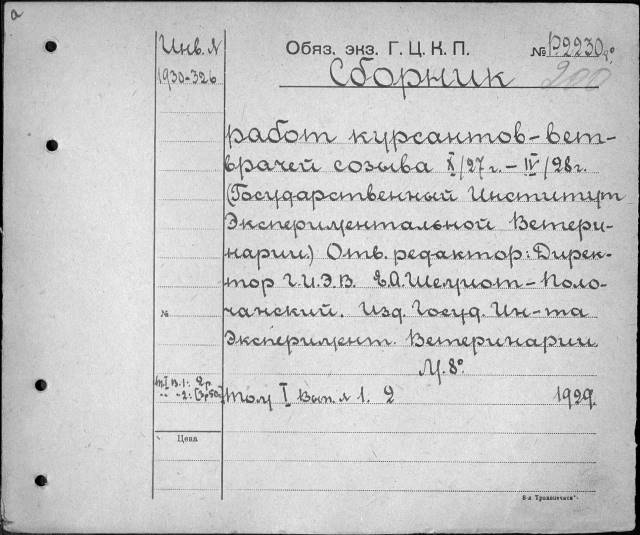 а
Инв. №
1930-326
Обяз. экз. Г. Ц. К. П.
№ Р2230 8°
200
Сборник
работ курсантов-вет-
врачей созыва X/27 г. – IV/28 г.
(Государственный Институт
Экспериментальной Ветери-
нарии.) Отв. редактор: Дирек-
тор Г.И.Э.В. Е.А. Шемиот-Поло-
чанский. Изд. Госуд. Ин-та
№
Эксперимент. Ветеринарии
М. 8°
т. I в. 1: 2р.
" " -2: [3р50к]
Том I Вып. № 1. 2 1929.
Цена